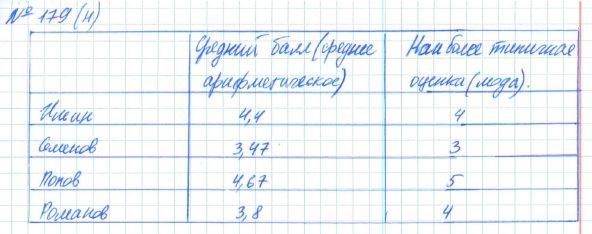 № 179 (н)
Средний балл (среднее арифметическое) Наиболее типичная оценка (мода).
Ильин 4,4 4
Семенов 3,47 3
Попов 4,67 5
Романов 3,8 4